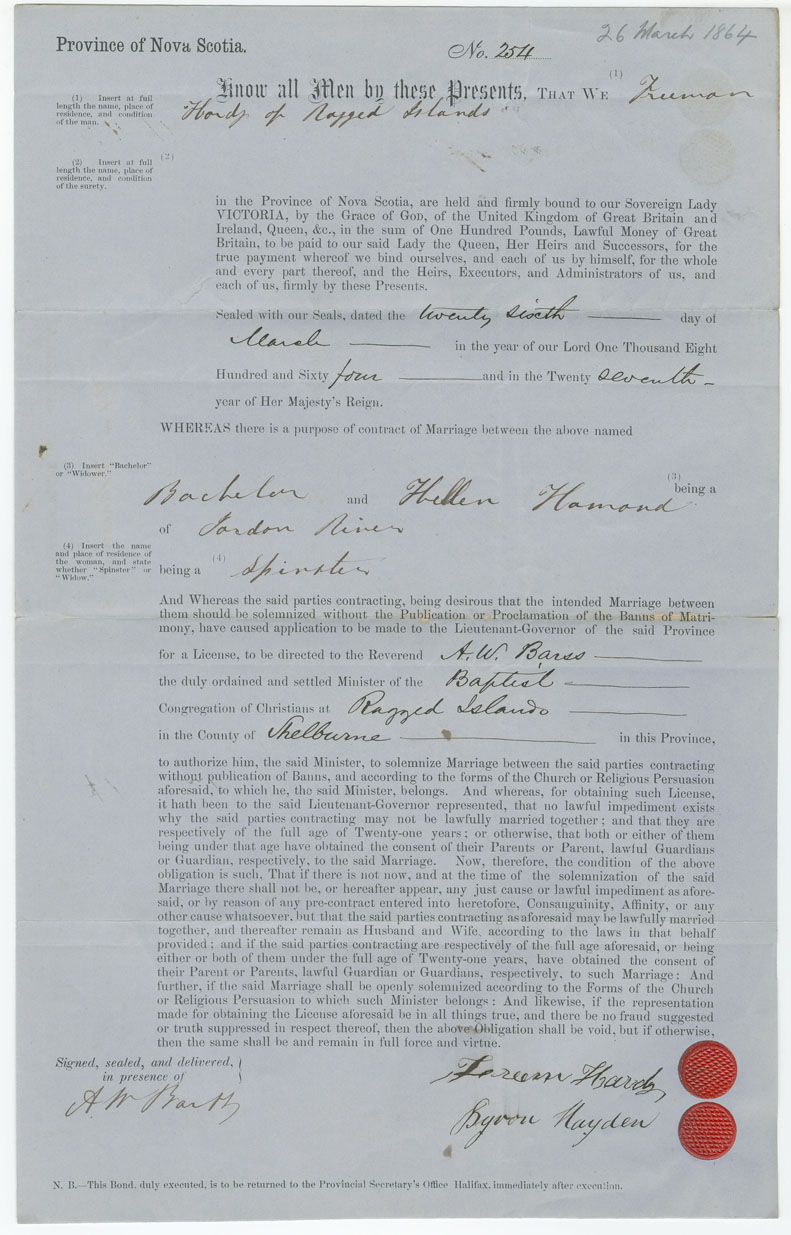 26 March 1864
Province of Nova Scotia.
No. 254
Know all Men by these Presents, THAT WE (1) Freeman
(1) Insert at full length the name, place of residence, and condition of the man.
Hardy of Ragged Islands
(2) Insert at full length the name, place of residence, and condition of the surety.
(2)
in the Province of Nova Scotia, are held and firmly bound to our Sovereign Lady
VICTORIA, by the Grace of God, of the United Kingdom of Great Britain and
Ireland, Queen, &c., in the sum of One Hundred Pounds, Lawful Money of Great
Britain, to be paid to our said Lady the Queen, Her Heirs and Successors, for the
true payment whereof we bind ourselves, and each of us by himself, for the whole
and every part thereof, and the Heirs, Executors, and Administrators of us, and
each of us, firmly by these Presents.
Sealed with our Seals, dated the twenty sixth day of
March in the year of our Lord One Thousand Eight
Hundred and Sixty four and in the Twenty seventh
year of Her Majesty's Reign.
WHEREAS there is a purpose of contract of Marriage between the above named
(3) Insert "Bachelor" or "Widower."
(3)
being a
Bachelor and Hellen Hamond
of Jordon River
(4) Insert the name and place of residence of the woman, and state whether "Spinster" or "Widow."
being a (4) Spinster
And Whereas the said parties contracting, being desirous that the intended Marriage between
them should be solemnized without the Publication or Proclamation of the Banns of Matri-
mony, have caused application to be made to the Lieutenant-Governor of the said Province
for a License, to be directed to the Reverend A. W. Barss
the duly ordained and settled Minister of the Baptist
Congregation of Christians at Ragged Islands
in the County of Shelburne in this Province,
to authorize him, the said Minister, to solemnize Marriage between the said parties contracting
without publication of Banns, and according to the forms of the Church or Religious Persuasion
aforesaid, to which he, the said Minister, belongs. And whereas, for obtaining such License,
it hath been to the said Lieutenant-Governor represented, that no lawful impediment exists
why the said parties contracting may not be lawfully married together; and that they are
respectively of the full age of Twenty-one years; or otherwise, that both or either of them
being under that age have obtained the consent of their Parents or Parent, lawful Guardians
or Guardian, respectively, to the said Marriage. Now, therefore, the condition of the above
obligation is such, That if there is not now, and at the time of the solemnization of the said
Marriage there shall not be, or hereafter appear, any just cause or lawful impediment as afore-
said, or by reason of any pre-contract entered into heretofore, Consanguinity, Affinity, or any
other cause whatsoever, but that the said parties contracting as aforesaid may be lawfully married
together, and thereafter remain as Husband and Wife, according to the laws in that behalf
provided; and if the said parties contracting are respectively of the full age aforesaid, or being
either or both of them under the full age of Twenty-one years, have obtained the consent of
their Parent or Parents, lawful Guardian or Guardians, respectively, to such Marriage: And
further, if the said Marriage shall be openly solemnized according to the Forms of the Church
or Religious Persuasion to which such Minister belongs: And likewise, if the representation
made for obtaining the License aforesaid be in all things true, and there be no fraud suggested
or truth suppressed in respect thereof, then the above Obligation shall be void, but if otherwise,
then the same shall be and remain in full force and virtue.
Signed, sealed, and delivered,
in presence of
A W Barss
Freem Hardy
Byron Hayden
N. B.—This Bond, duly executed, is to be returned to the Provincial Secretary's Office Halifax, immediately after execution.